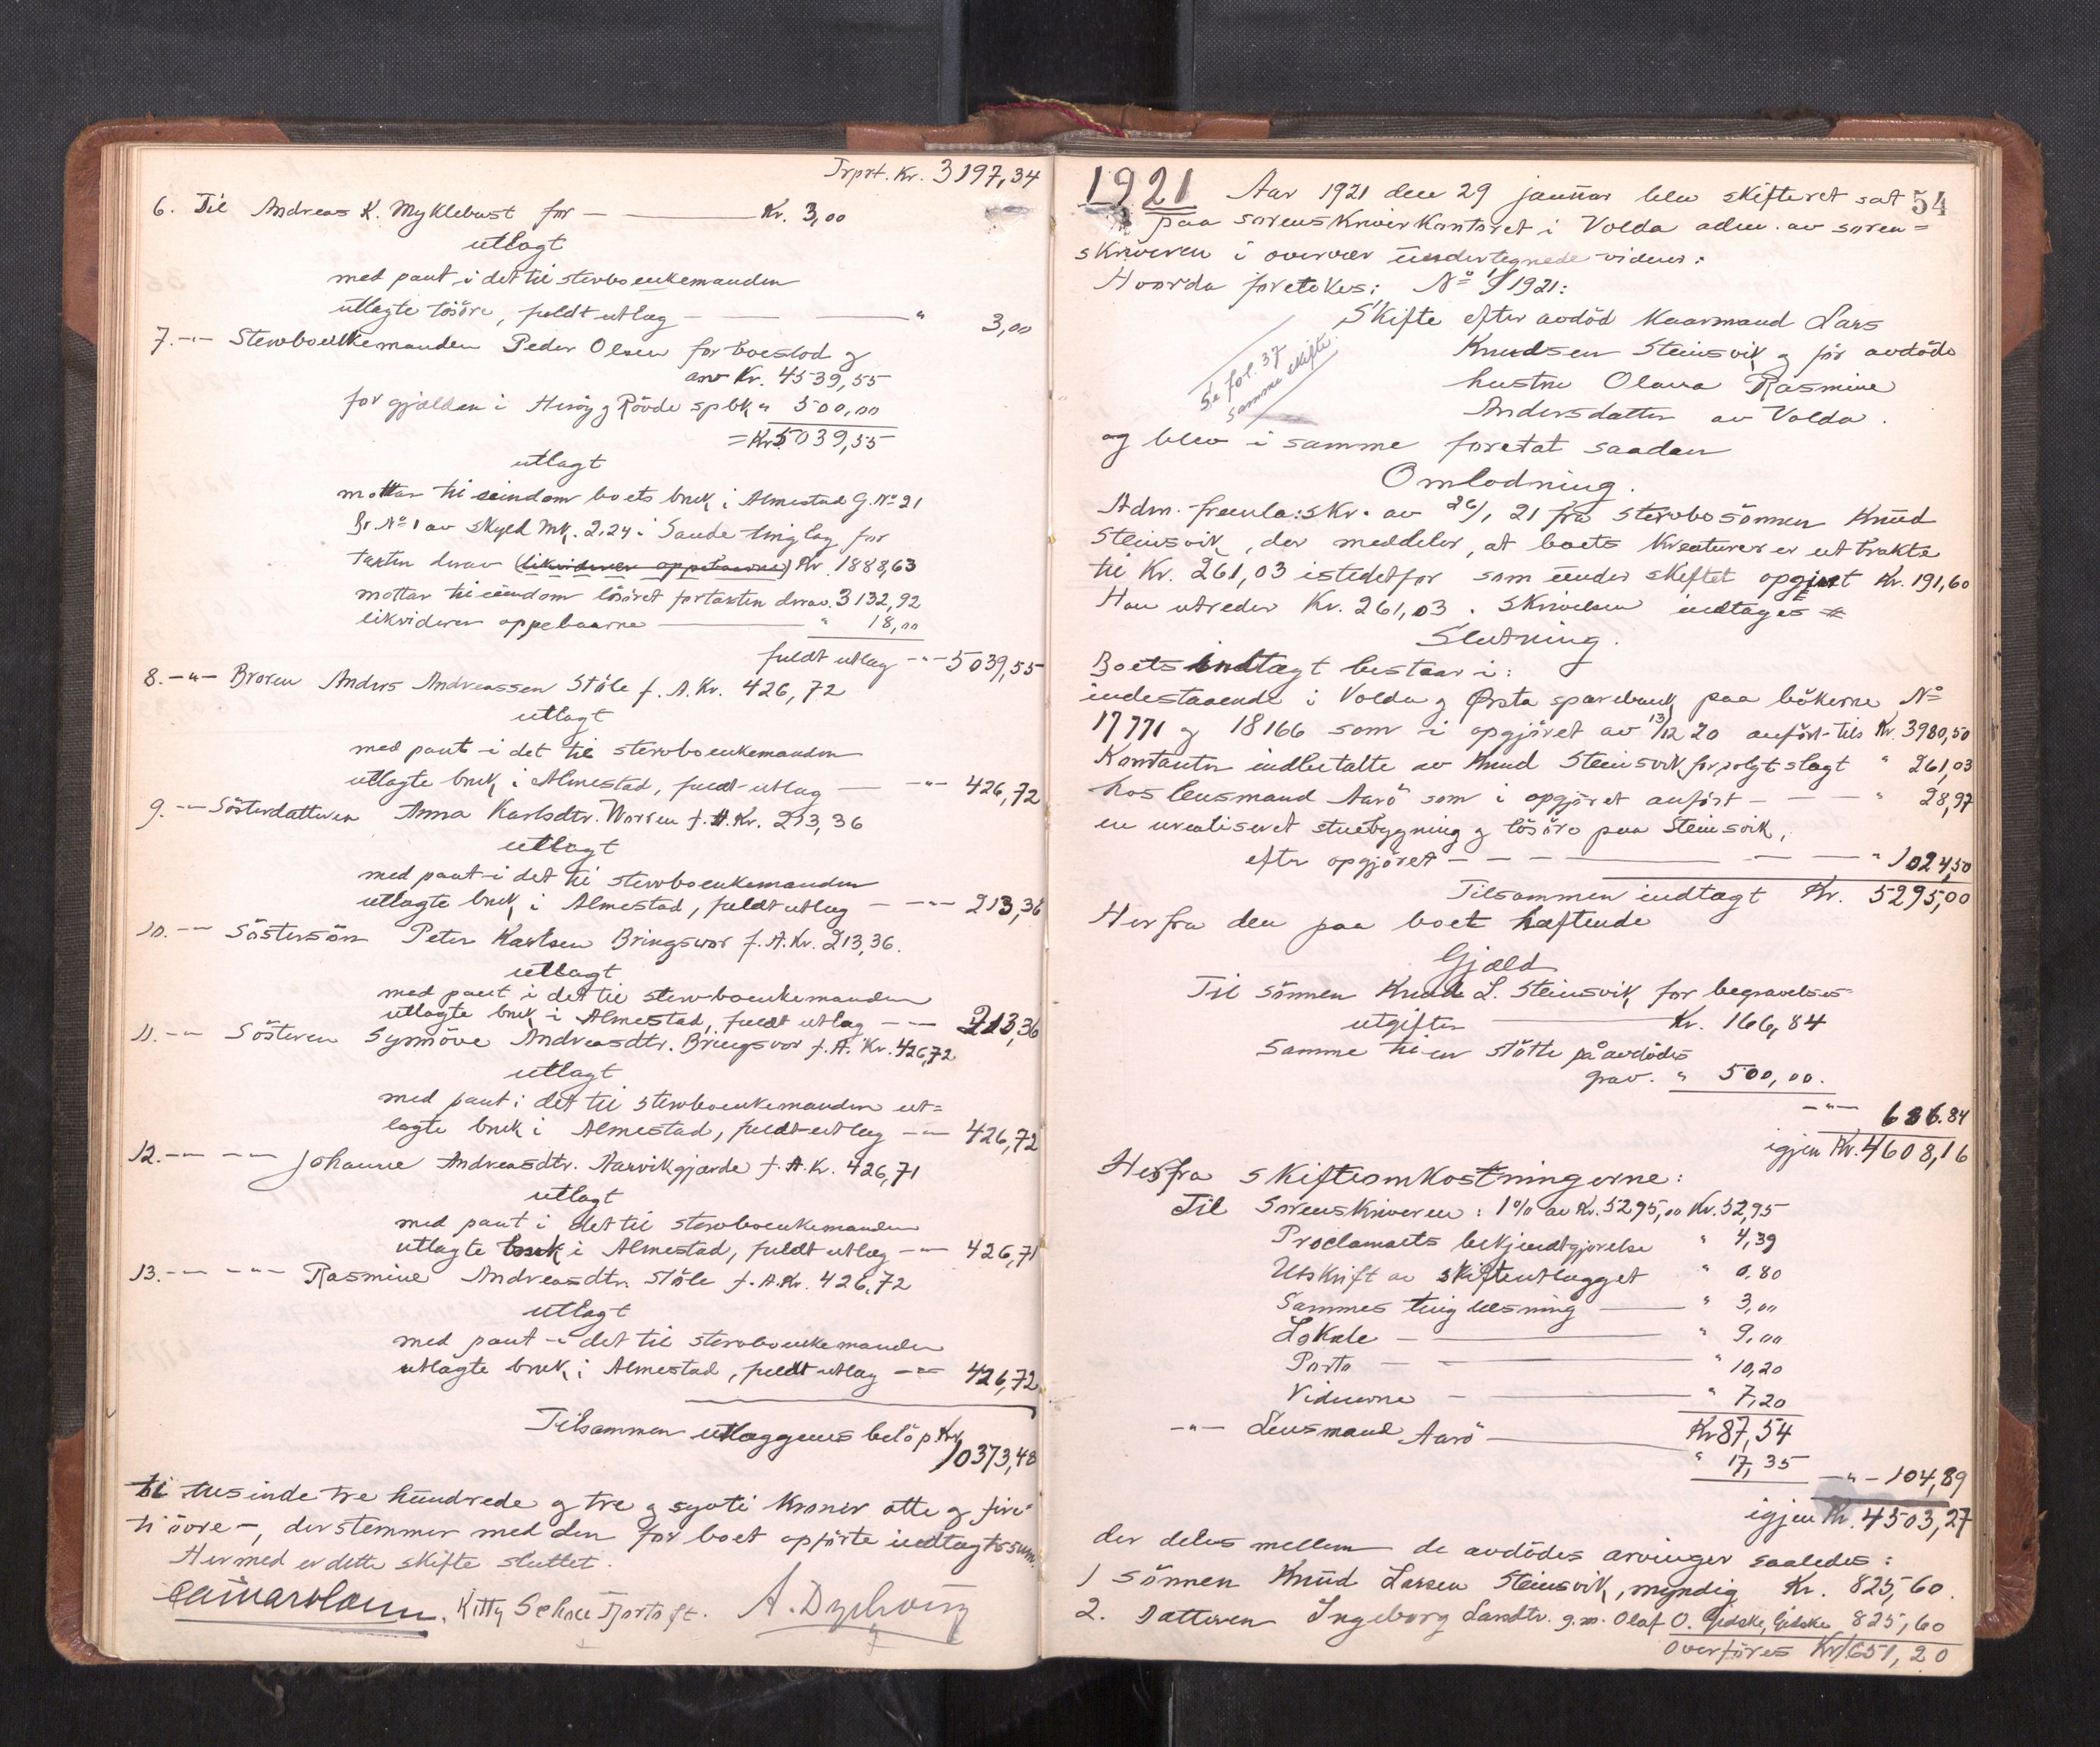 Trprt. Kr. 3197,34
6. Til Andreas K. Myklebust for — Kr. 3,00
utlagt
med pant i det til stervboenkemanden
utlagte lösöre, fuldt utlæg — " 3,00
7. -"- Stervboenkemanden Peder Olsen for boeslod og
arv Kr. 4539,55
for gjælden i Heröy og Rövde spbk " 500,00
= Kr. 5039,55
utlagt
mottar til eiendom boets bruk i Almestad G. No 21
Br. No 1 av skyld mk. 2,24 i Sande tinglag for
taxten derav (likviderer oppebaarne) Kr. 1888,63
mottar til eiendom lösöret for taxten derav. 3132,92
likviderer oppebaarne — " 18,00
fuldt utlæg -"- 5039,55
8. -"- Broren Anders Andreassen Støle f. A. Kr. 426,72
utlagt
med pant i det til stervboenkemanden
utlagte bruk i Almestad, fuldt utlæg — -"- 426,72
9. -"- Søsterdatteren Anna Karlsdtr. Worren f. A. Kr. 213,36
utlagt
med pant i det til stervboenkemanden
utlagte bruk i Almestad, fuldt utlæg — -"- 213,36
10. -"- Søstersön Peter Karlsen Bringsvor f. A. Kr. 213,36.
utlagt
med pant i det til stervboenkemanden
utlagte bruk i Almestad, fuldt utlæg -"- 213,36
11. -"- Søsteren Synnöve Andreasdtr. Bringsvor f. A. Kr. 426,72
utlagt
med pant i det til stervboenkemanden ut=
lagte bruk i Almestad, fuldt utlæg -"- 426,72
12. -"- -"- Johanne Andreasdtr. Aarvikgjærde f. A. Kr. 426,71
utlagt
med pant i det til stervboenkemanden
utlagte bruk i Almestad, fuldt utlæg -"- 426,71
13. -"- -"- Rasmine Andreasdtr. Støle f. A. Kr. 426,72
utlagt
med pant i det til stervboenkemanden
utlagte bruk i Almestad, fuldt utlæg -"- 426,72
Tilsammen utlæggenes belöp Kr.
10373,48
ti tusinde tre hundrede og tre og sytti kroner otte og fire=
ti öore —, der stemmer med den for boet opförte indtægtssum.
Hermed er dette skifte sluttet.
Kitty Schou Fjortoft. A.
1921 Aar 1921 den 29 januar blev skifteret sat 54
paa sorenskriverkontoret i Volda adm. av soren=
skriveren i overvær undertegnede vidner:
Hvorda foretokes: No 1/1921:
Skifte efter avdöd kaarmand Lars
Knudsen Steinsvik og för avdöde
hustru Olava Rasmine
Andersdatter av Volda.
Se fol. 37
samme skifte.
og blev i samme foretat saadan
Omlodning.
Adm. fremla: skr. av 26/1 21 fra stervbosönnen Knud
Steinsvik, der meddeler, at boets kreaturer er uttrakte
til Kr. 261,03 istedetfor som under skiftet opgivet Kr. 191,60
Han utreder Kr. 261,03. Skrivelsen indtages #
Slutning.
Boets indtægt bestaar i:
indestaaende i Volda og Ørsta sparebank paa bökerne No
17771 og 18166 som i opgjöret av 13/12 20 anfört til Kr. 3980,50
Kontanter indbetalte av Knud Steinsvik for solgt slagt " 261,03
hos lensmand Aarö som i opgjöret anfört — " 28,97
en urealiseret stuebygning og lösöre paa Steinsvik,
efter opgjöret — " 1024,50
Tilsammen indtægt Kr. 5295,00
Herfra den paa boet hæftende
Gjæld
Til sönnen Knud L. Steinsvik for begravelses=
utgifter — Kr. 166,84
Samme til en stötte på avdödes
grav. " 500,00.
-"- 686.84
igjen Kr. 4608,16
Herfra skifteomkostningerne:
Til Sorenskriveren: 1% av Kr. 5295,00 Kr. 52,95
Proclamaets bekjendtgjörelse " 4,39
Utskrift av skifteutlægget " 0,80
Sammes tinglæsning — " 3,00
Lokale — " 9,00
Porto — " 10,20
Vidnerne — " 7,20
Kr 87,54
-"- Lensmand Aarö — " 17,35
-"- 104,89
igjen Kr. 4503,27
der deles mellem de avdödes arvinger saaledes:
1 Sönnen Knud Larsen Steinsvik, myndig Kr. 825,60.
2. Datteren Ingeborg Larsdtr. g. m. Olaf O. Gjedske, Gidske 825,60
Overföres Kr. 1651,20